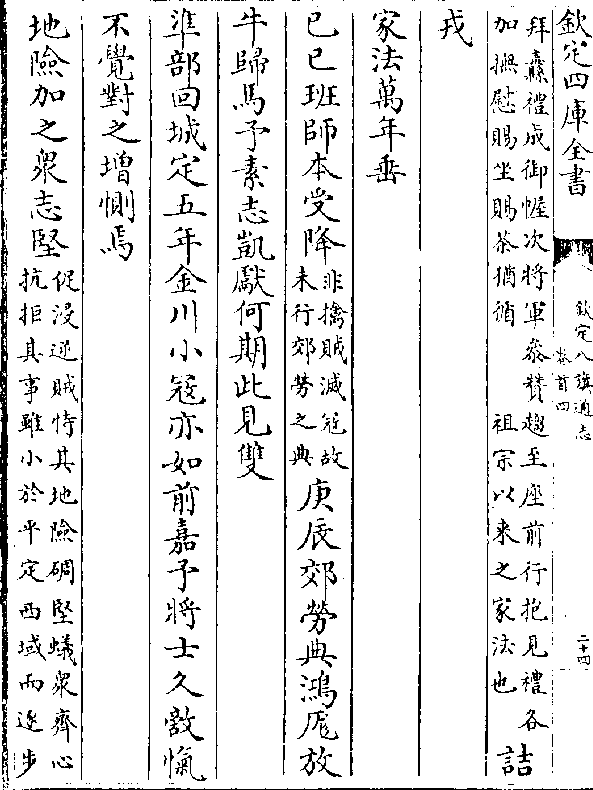 欽定四庫全書
欽定八旗通志
卷首四
二十四
拜纛禮成御幄次將軍叅贊趨至座前行抱見禮各
加撫慰賜坐賜茶猶循 祖宗以來之家法也
詰
戎
家法萬年垂
己巳班師本受降
非擒賊滅冦故
未行郊勞之典
庚辰郊勞典鴻厖放
牛歸馬予素志凱獻何期此見雙
準部回城定五年金川小冦亦如前嘉予將士久敵愾
不覺對之增惻焉
地險加之衆志堅
促浸逆賊恃其地險碉堅蟻衆齊心
抗拒其事雖小於平定西域而逐步